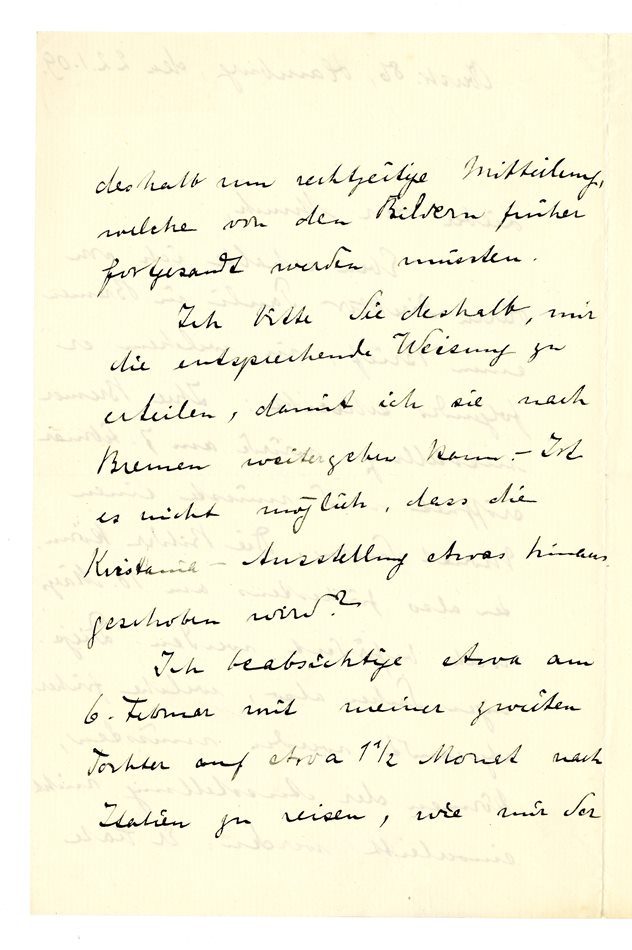 deshalb um rechtzeitige Mitteilung,
welche von den Bildern früher
fortgesandt werden müssten.
Ich bitte Sie deshalb, mir
die entsprechende Weisung zu
erteilen, damit ich sie nach
Bremen weitergeben kann. – Ist
es nicht möglich, dass die
Kristania – Ausstellung etwas hinaus
geschoben wird?
Ich beabsichtige etwa am
6. Februar mit meiner zweiten
Tochter auf etwa 1 1/2 Monat nach
Italien zu reisen, wie mir der